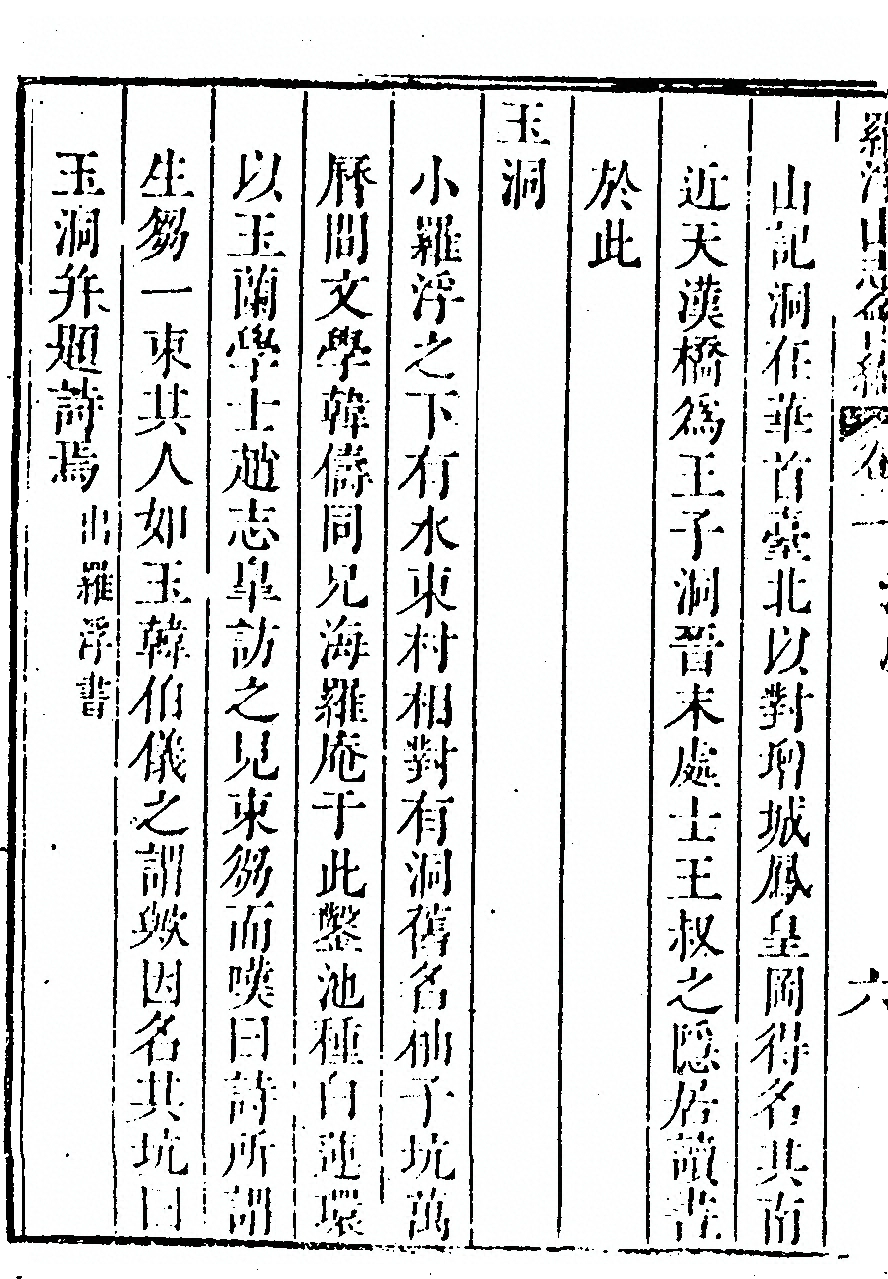 羅浮山志會編 卷二 六
山記洞在華首臺北以對增城鳳皇岡得名其南
近天漢橋為王子洞晉末處士王叔之隱居讀書
於此
玉洞
小羅浮之下有水東村相對有洞舊名仙子坑萬
曆間文學韓儔同兄海羅庵于此鑿池種白蓮環
以玉蘭學士趙志皐訪之見束芻而嘆曰詩所謂
生芻一束其人如玉韓伯儀之謂歟因名其坑曰
玉洞并題詩焉出羅浮書